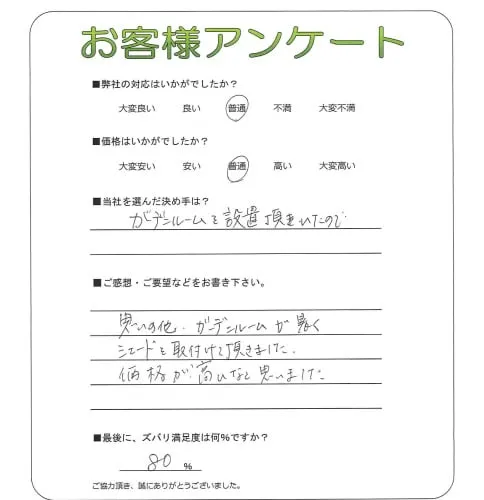 お客様アンケート
■弊社の対応はいかがでしたか？
大変良い 良い 普通 不満 大変不満
■価格はいかがでしたか？
大変安い 安い 普通 高い 大変高い
■当社を選んだ決め手は？
ガーデンルームを設置頂きいたので
■ご感想・ご要望などをお書き下さい。
思いの他、ガーデンルームが暑く
シェードを取付けて頂きました。
価格が高いなと思いました
■最後に、ズバリ満足度は何%ですか？
80 %
ご協力頂き、誠にありがとうございました。